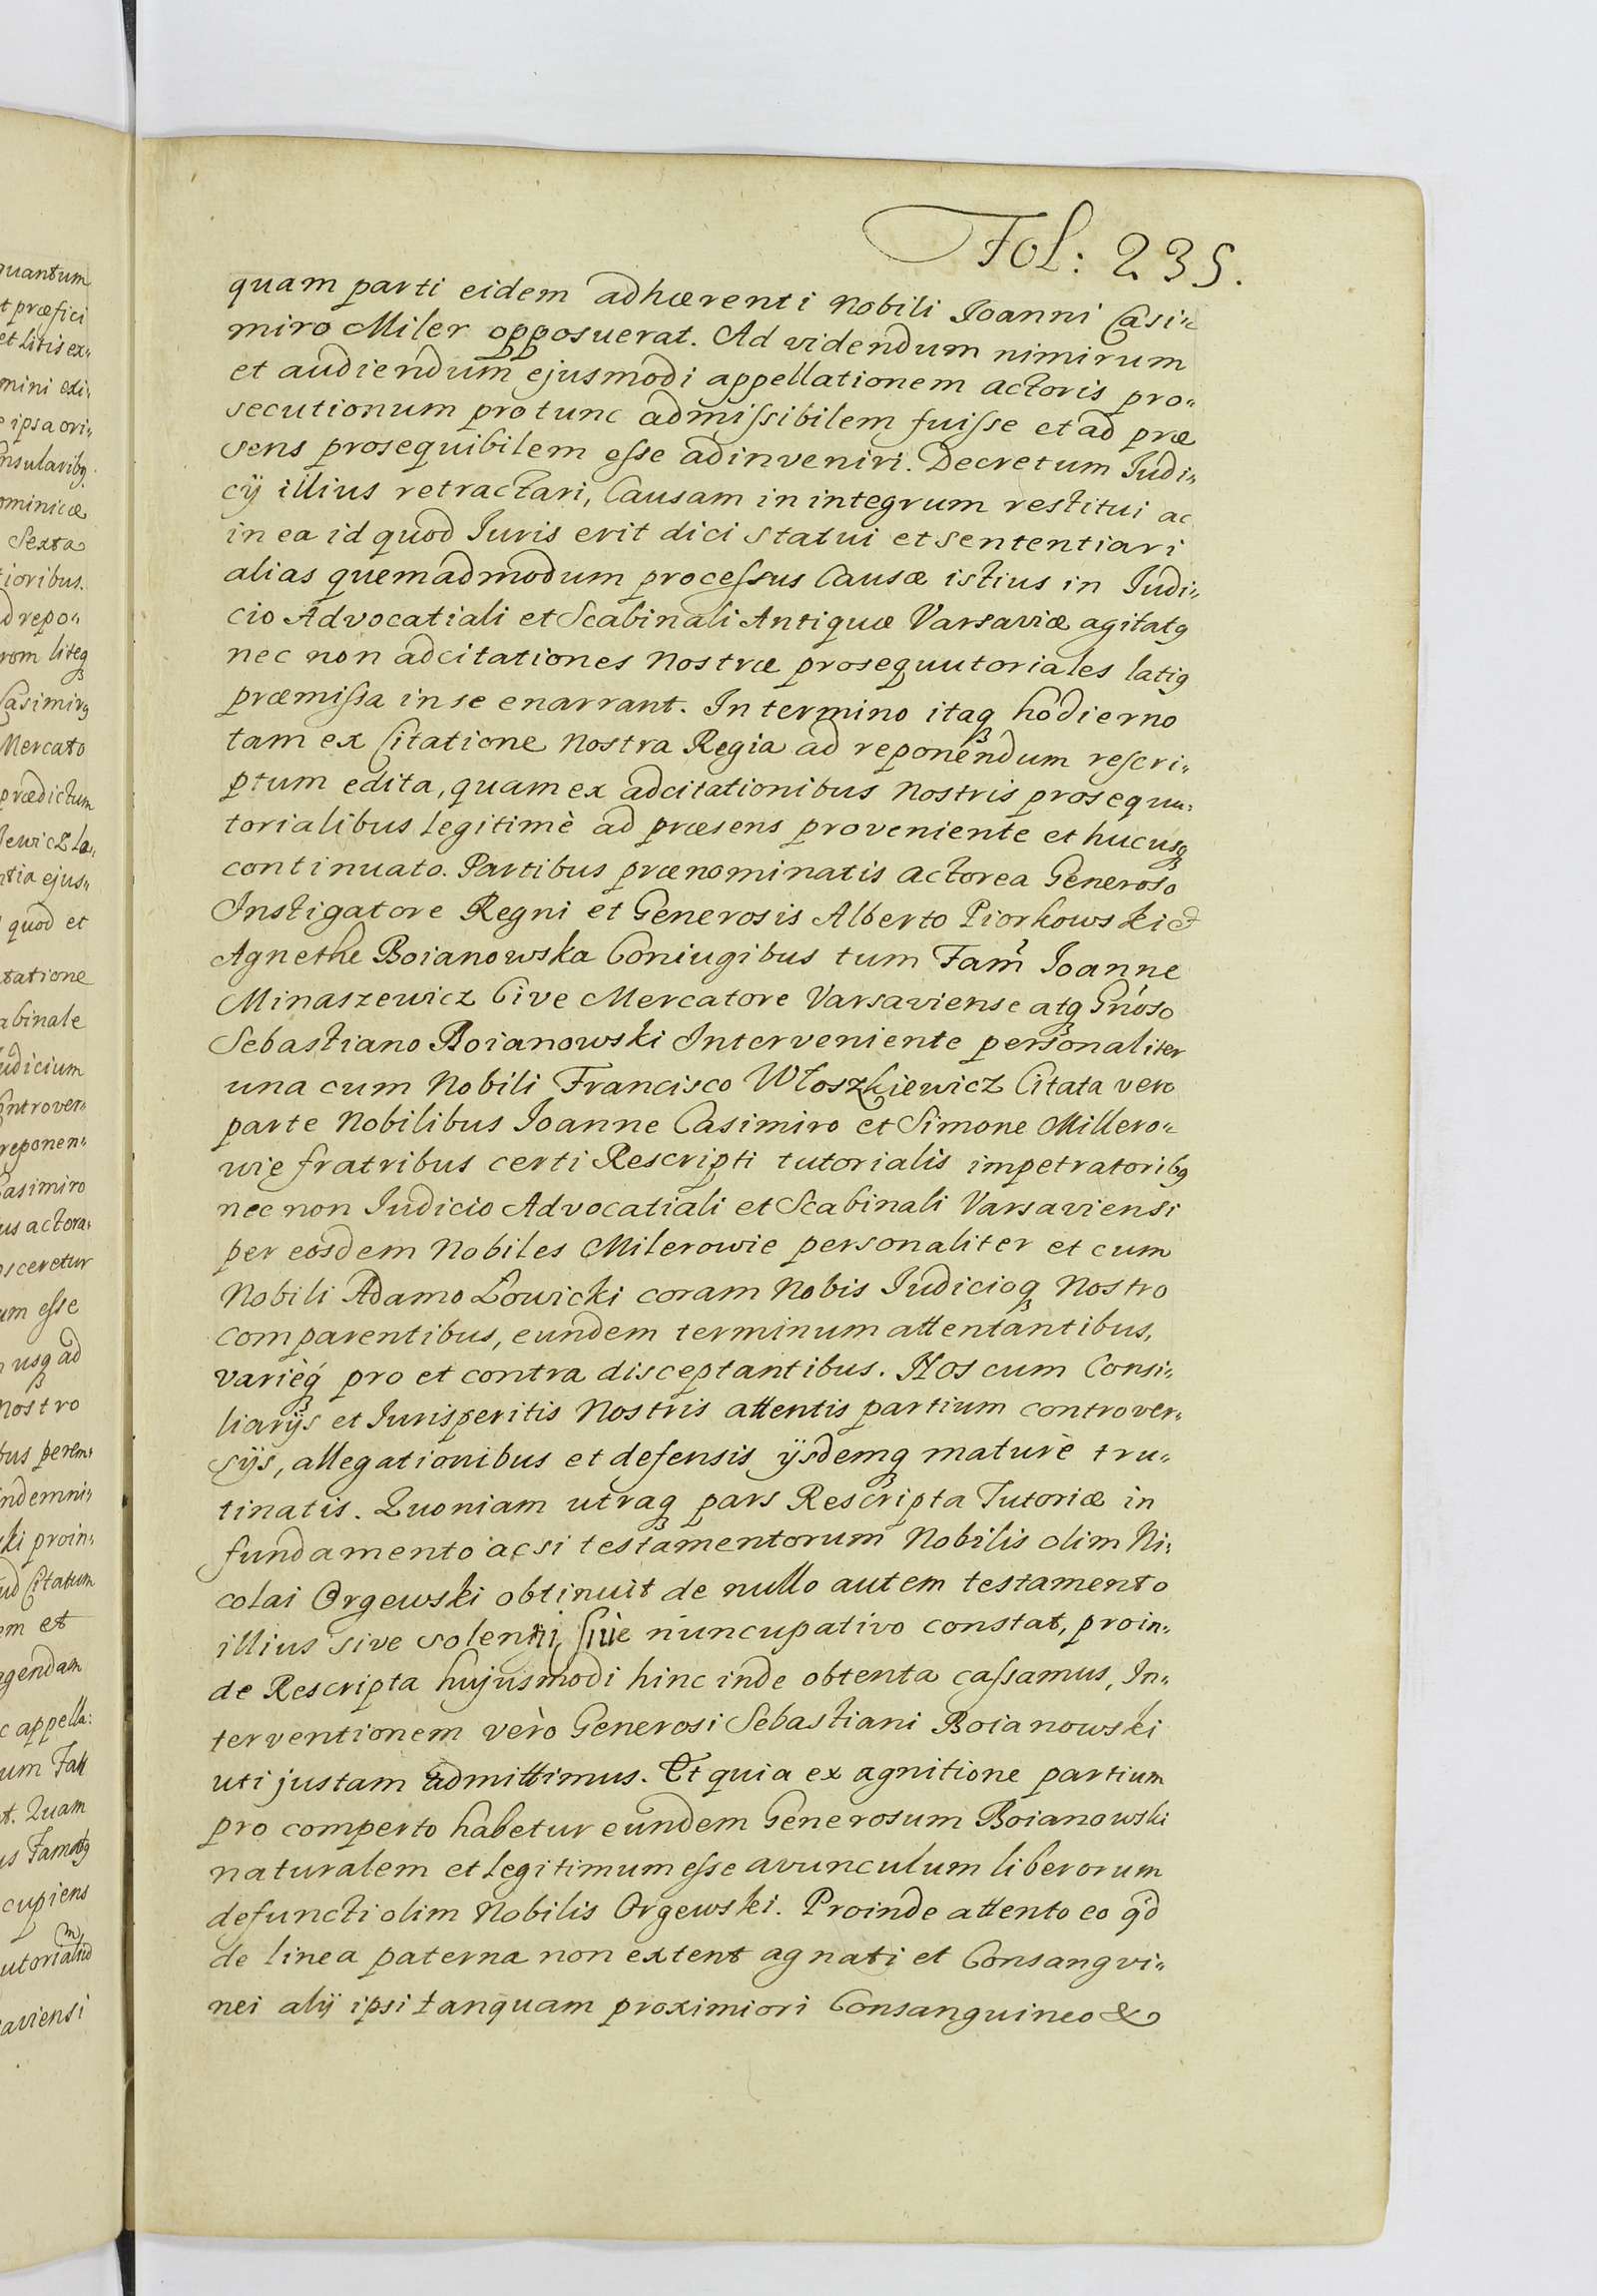 Fol: 235.
quam parti eidem adhærenti Nobili Joanni Casi„
miro Miler opposuerat. Ad videndum nimirum
et audiendum ejusmodi appellationem actoris pro„
secutionum protunc admiſsibilem fuiſse et ad præ
sens prosequibilem eſse adinveniri. Decretum Judi„
cÿ illius retractari, Causam in integrum restitui ac
in ea id quod Juris erit dici statui et sententiari
alias quemadmodum proceſsus Causæ istius in Judi„
cio Advocatiali et Scabinali Antiquæ Varsaviæ agitatꝰ
nec non adcitationes Nostræ prosequutoriales latiꝰ
præmiſsa in se enarrant. In termino itaqꝫ hodierno
tam ex Citatione Nostra Regia ad reponendum reſcri„
ptum edita, quam ex adcitationibus Nostris prosequu„
torialibus legitimè ad præsens proveniente et hucusqꝫ
continuato. Partibus prænominatis actorea Generoso
Instigatore Regni et Generosis Alberto Piorkowski et
Agnethe Boianowska Coniugibus tum Fam̃ Joanne
Minaszewicz Cive Mercatore Varsaviense atqꝫ Gñoso
Sebastiano Boianowski Interveniente personaliter
una cum Nobili Francisco Włoszkiewicz Citata vero
parte Nobilibus Joanne Casimiro et Simone Millero„
wie fratribus certi Rescripti tutorialis impetratoribꝰ
nec non Judicio Advocatiali et Scabinali Varsaviensi
per eosdem Nobiles Milerowie personaliter et cum
Nobili Adamo Łowicki coram Nobis Judicioqꝫ Nostro
comparentibus, eundem terminum attentantibus,
varièqꝫ pro et contra disceptantibus. Nos cum Consi„
liarÿs et Jurisperitis Nostris attentis partium controver„
sÿs, allegationibus et defensis ÿsdemqꝫ maturè tru„
tinatis. Quoniam utraqꝫ pars Rescripta Tutoriæ in
fundamento ac si testamentorum Nobilis olim Ni„
colai Orgewski obtinuit de nullo autem testamento
illius sive solenni, ſive nuncupativo constat, proin„
de Rescripta hujusmodi hinc inde obtenta caſsamus, In„
terventionem vèro Generosi Sebastiani Boianowski
uti justam admittimus. Et quia ex agnitione partium
pro comperto habetur eundem Generosum Boianowski
naturalem et legitimum eſse avunculum liberorum
defuncti olim Nobilis Orgewski. Proinde attento eo qd̃
de linea paterna non extent agnati et Consangvi„
nei alÿ ipsi tanquam proximiori Consanguineo &